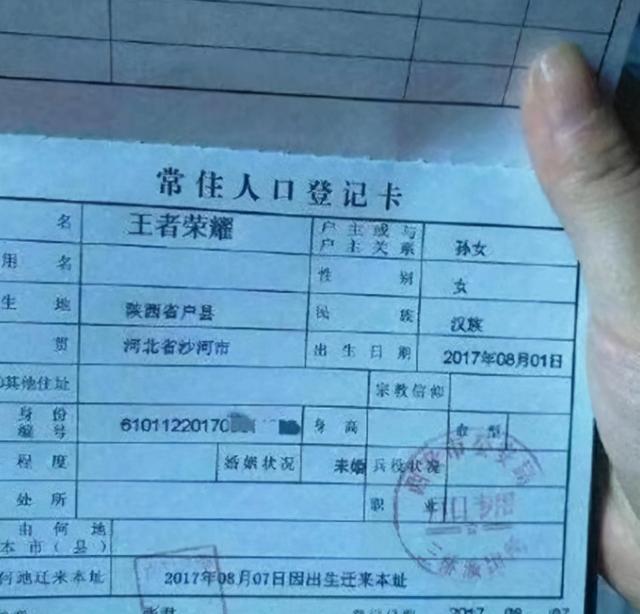 常住人口登记卡
名 王者荣耀 户主或与户主关系 孙女
用名 性别 女
生地 陕西省户县 民族 汉族
贯 河北省沙河市 出生日期 2017年08月01日
其他住址 宗教信仰
身份编号 61011220170 身高 血型
程度 婚姻状况 未婚 兵役状况
处所 职业
由何地
本市（县）
何地迁来本址 2017年08月07日因出生迁来本址